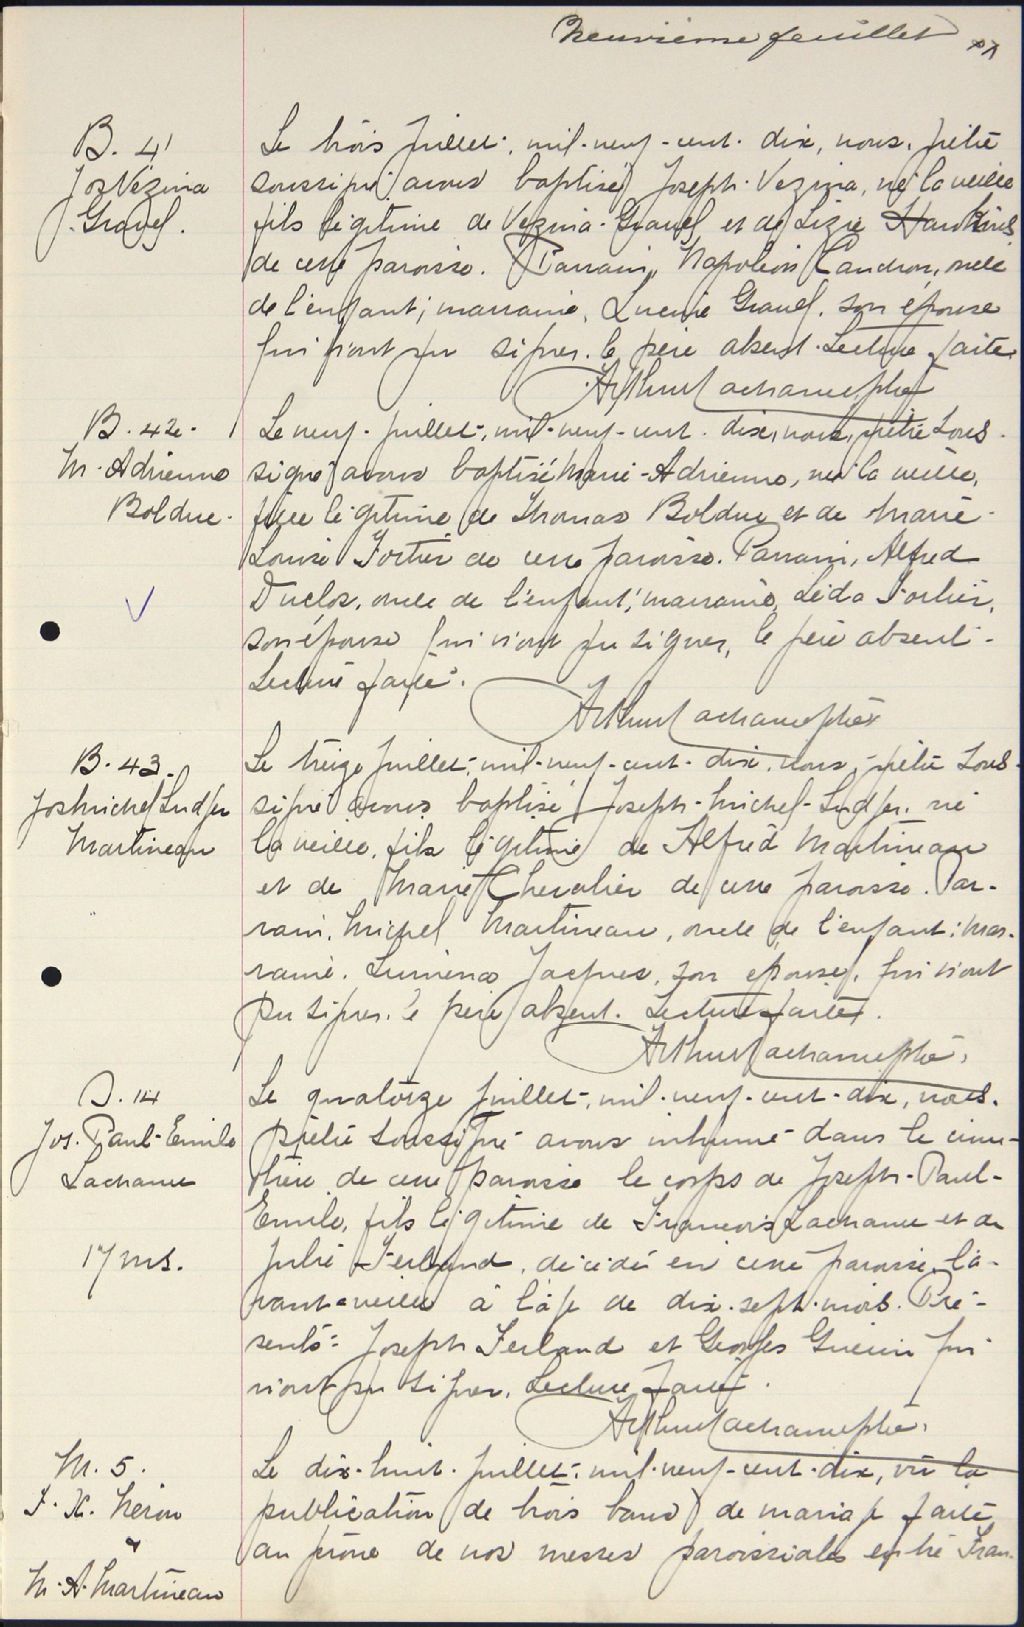 Neuvième feuillet
B. 41
Jos Vézina
Gravel.
Le trois juillet, mil-neuf-cent-dix, nous, prêtre
soussigné avons baptisé Joseph-Vezina, né la veille
fils légitime de Vezina Gravel et de Lizie Hawkins
de cette paroisse. Parrain, Napoléon Candron, oncle
de l'enfant; marraine, Lucine Gravel, son épouse
qui n'ont pu signer. le père absent. Lecture faite
Arthur Lachance ptre
B. 42.
M. Adrienne
Bolduc.
Le neuf juillet, mil-neuf-cent-dix, nous, prêtre sous-
signé avons baptisé Marie-Adrienne, née la veille,
fille légitime de Thomas Bolduc et de Marie-
Louise Fortier de cette paroisse. Parrain, Alfred
Duclos, oncle de l'enfant; marraine, Léda Fortier,
son épouse qui n'ont pu signer, le père absent.
Lecture faite.
Arthur Lachance ptre
B. 43.
Jos Michel Ludger
Martineau
Le treize juillet, mil-neuf-cent-dix, nous, prêtre sous-
signé avons baptisé Joseph-Michel-Ludger, né
la veille, fils légitime de Alfred Martineau
et de Marie Chevalier de cette paroisse. Par-
rain, Michel Martineau, oncle de l'enfant; mar-
raine, Luména Jacques, son épouse, qui n'ont
pu signer. le père absent. Lecture faite.
Arthur Lachance ptre.
S. 14
Jos. Paul-Emile
Lachance
17 ms.
Le quatorze juillet, mil-neuf-cent-dix, nous,
prêtre soussigné avons inhumé dans le cime-
tière de cette paroisse le corps de Joseph-Paul-
Emile, fils légitime de François Lachance et de
Julie Ferland, décédé en cette paroisse l'a-
vant-veille à l'âge de dix-sept mois. Pré-
sents: Joseph Ferland et Georges Guérin qui
n'ont pu signer. Lecture faite.
Arthur Lachance ptre.
M. 5.
F. X. Néron
&
M. A. Martineau
Le dix-huit juillet, mil-neuf-cent-dix, vu la
publication de trois bans de mariage faite
au prône de nos messes paroissiales entre Fran-